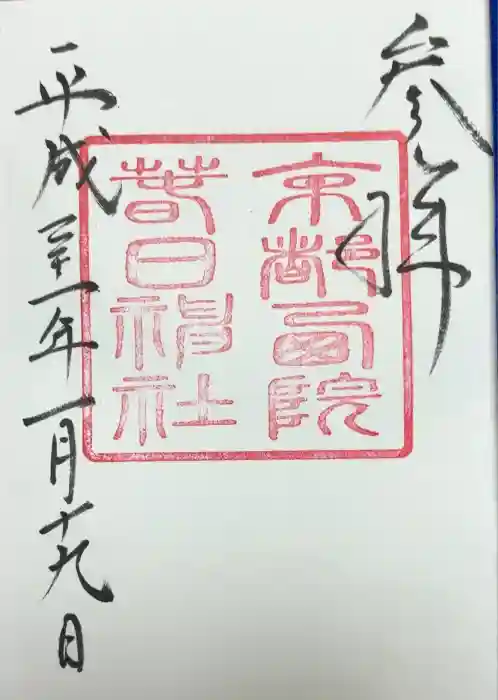 参拝
京都西院
春日神社
平成三十一年一月十九日